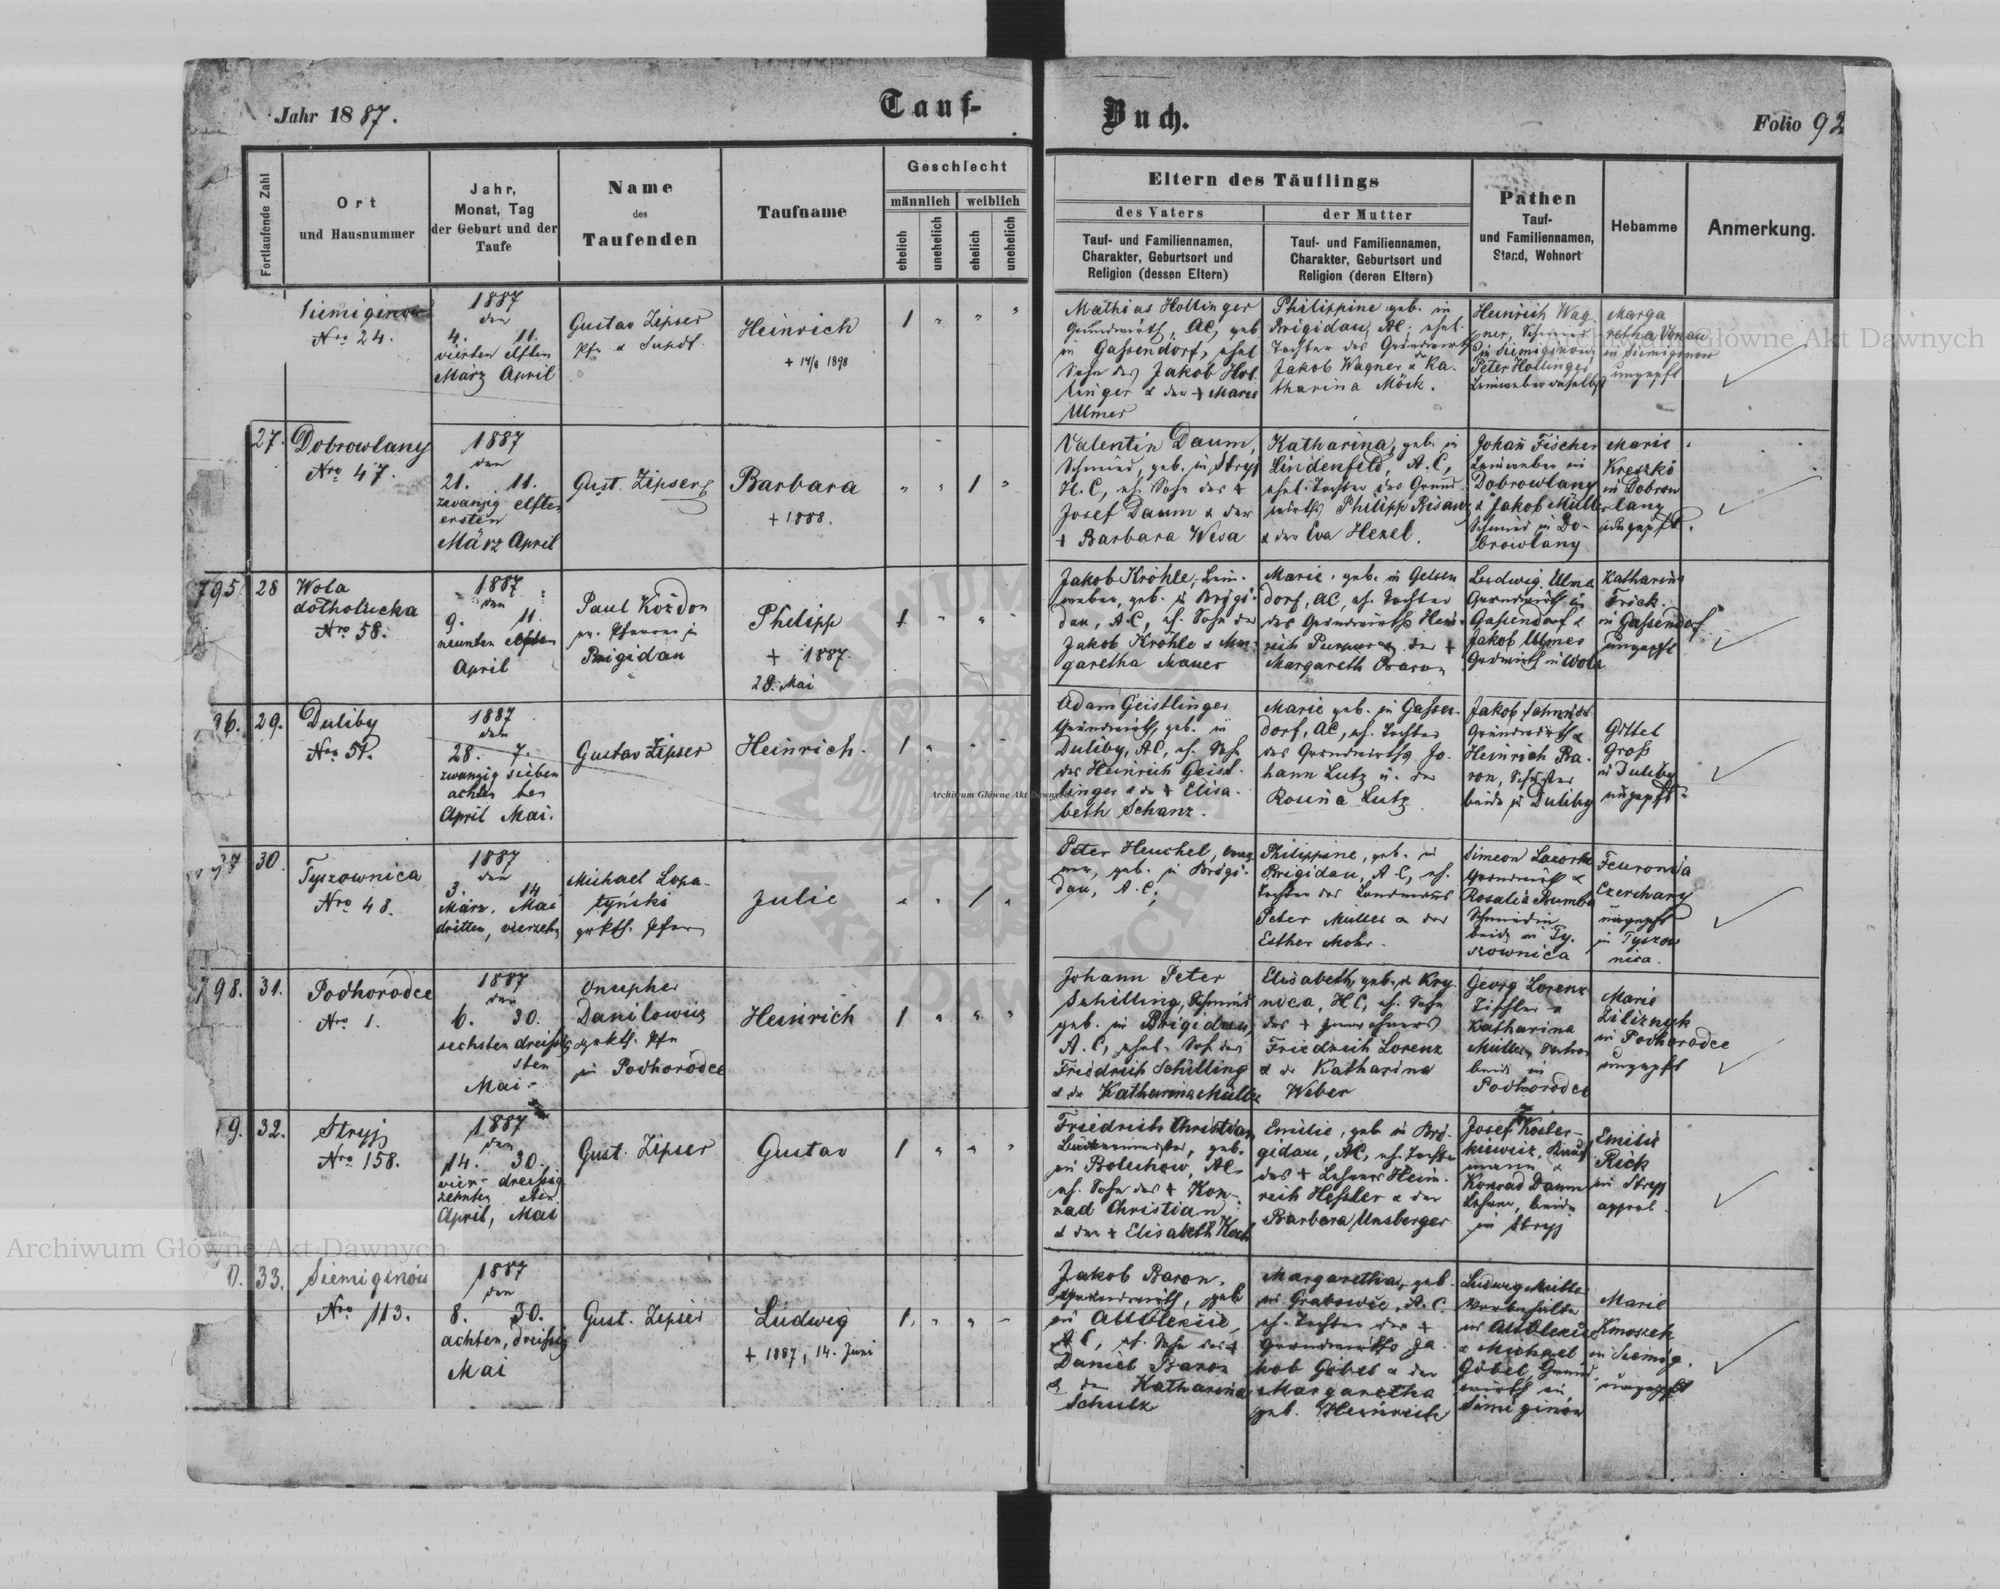 Jahr 1887.
Tauf-
Buch.
Folio 92
Fortlaufende Zahl
Ort
und Hausnummer
Jahr,
Monat, Tag
der Geburt und der
Taufe
Name
des
Taufenden
Taufname
Geschlecht
männlich
weiblich
ehelich
unehelich
ehelich
unehelich
Eltern des Täuflings
des Vaters
der Mutter
Tauf- und Familiennamen,
Charakter, Geburtsort und
Religion (dessen Eltern)
Tauf- und Familiennamen,
Charakter, Geburtsort und
Religion (deren Eltern)
Pathen
Tauf-
und Familiennamen,
Stand, Wohnort
Hebamme
Anmerkung.
Siemiginow
Nro 24.
1887
den
4. 11.
vierten elften
März April
Gustav Zipser
Heinrich
1 " " "
Mathias Hollinger
Grundwirth, AC, geb
in Gassendorf, ehel
Sohn des Jakob Hol-
linger & der + Marie
Ulmer
Philippine geb. in
Brigidau, AC, ehel.
Tochter des Grundwirth
Jakob Wagner & Ka-
tharina Möck.
Heinrich Wag-
ner, Schmied
in Siemiginow
Peter Hollinger
Marga
retha Vonau
in Siemiginow
ungepft
27. Dobrowlany
Nro 47.
1887
den
21. 11.
zwanzig elften
ersten
März April
Gust. Zipser
Barbara
+ 1888.
" " 1 "
Valentin Daum,
Schmied, geb. in Stryj
H.C, eh. Sohn des +
Josef Daum & der
+ Barbara Wesa
Katharina, geb. in
Lindenfeld, A.C,
ehel. Tochter des Grund-
wirths Philipp Bisanz
& der Eva Hexel.
Johañ Fischer
Dobrowlany
& Jakob Müller
Schmied in Do-
browlany
Marie
Kreszkó
in Dobrow
lany
ungepft.
795 28 Wola
dołhołucka
Nro 58.
1887
den
9. 11.
neunten elften
April
Paul Kożdon
ev. Pfarrer in
Brigidau
Philipp
+ 1887.
28. Mai
1 " " "
Jakob Kröhle, Lein-
weber, geb. in Brigi-
dau, A.C, eh. Sohn des
Jakob Kröhle & Mar-
garetha Mauer
Marie, geb. in Gelsen
dorf, AC, eh. Tochter
des Grundwirths Hein-
rich & der +
Margareth Baron
Ludwig Ulmer
Grundwirth in
Gassendorf &
Jakob Ulmer
Grdwirth in Wola
Katharina
Frick.
in Gassendorf
ungepft
96. 29. Duliby
Nro 51.
1887
den
28. 7.
zwanzig sieben
achten ten
April Mai.
Gustav Zipser
Heinrich.
1 " " "
Adam Geistlinger
Grundwirth, geb. in
Duliby, AC, eh. Sohn
des Heinrich Geist-
linger & der + Elisa-
beth Schanz.
Marie geb. in Gassen-
dorf, AC, eh. Tochter
des Grundwirths Jo-
hann Lutz u. der
Rosina Lutz
Grundwirth &
Heinrich Ba-
ron, Schuster
beide in Duliby
Gittel
Gross
in Duliby
ungepft.
97 30. Tyszownica
Nro 48.
1887
den
3. 14
März. Mai
dritten, vierzehn
Michael Łopa-
tyński
grkth. Pfarr
Julie
" " 1 "
Peter Heuchel,
geb. in Brigi-
dau, A.C,
Philippine, geb. in
Brigidau, A.C, eh.
Tochter des Landmanns
Peter Müller & der
Esther Mohr.
Simeon
Grundwirth &
Rosalie Rumba
Schmiedin
beide in Ty-
szownica
Feuronija
Czerchany
ungepft
in Tyszow
nica.
798. 31. Podhorodce
Nro 1.
1887
den
6. 30.
sechsten dreissig
sten
Mai
Onupher
Daniłowicz
grkth. Pfr
in Podhorodce
Heinrich
1 " " "
Johann Peter
Schilling, Schmied
geb. in Brigidau,
A.C, ehel. Sohn des
Friedrich Schilling
& der Katharina Müller
Elisabeth, geb. in Kry-
nica, H.C, eh.
des + Inwohners
Friedrich Lorenz
& der Katharina
Weber
Georg Lorenz
Tischler &
Katharina
Müller,
beide in
Podhorodce
Marie
Żiliznyk
in Podhorodce
ungepft
9. 32. Stryj
Nro 158.
1887
den
14. 30.
vier- dreissig
zehnten sten
April, Mai
Gust. Zipser
Gustav
1 " " "
Friedrich Christian
geb.
in Bolechow, AC
eh. Sohn des + Kon-
rad Christian
& der + Elisabeth Koch
Emilie, geb. in Bri-
gidau, AC, eh. Tochter
des + Lehrers Hein-
reich Hessler & der
Barbara Unsberger
Josef Kosler-
kiewicz, Kauf
mann &
Konrad Daum
Lehrer, beide
in Stryj
Emilie
Rick
in Stryj
approb.
0. 33. Siemiginów
Nro 113.
1887
den
8. 30.
achten, dreissig
Mai
Gust. Zipser
Ludwig
+ 1887, 14. Juni
1. " " "
Jakob Baron,
Grundwirth, geb
in Altoleksie,
AC, eh. Sohn des +
Daniel Baron
& der Katharina
Schulz
Margaretha, geb.
in Grabowce, A.C.
eh. Tochter des +
Grundwirths Ja-
kob Göbel & der
Margaretha
geb. Heinrich
Ludwig Müller
in Altoleksie
& Michael
Göbel, Grund-
wirth in
Siemiginow
Marie
Kmoszek
in Siemig.
ungepft
Archiwum Główne Akt Dawnych
Archiwum Główne Akt Dawnych
Archiwum Główne Akt Dawnych
ARCHIWUM
AKT DAWNYCH